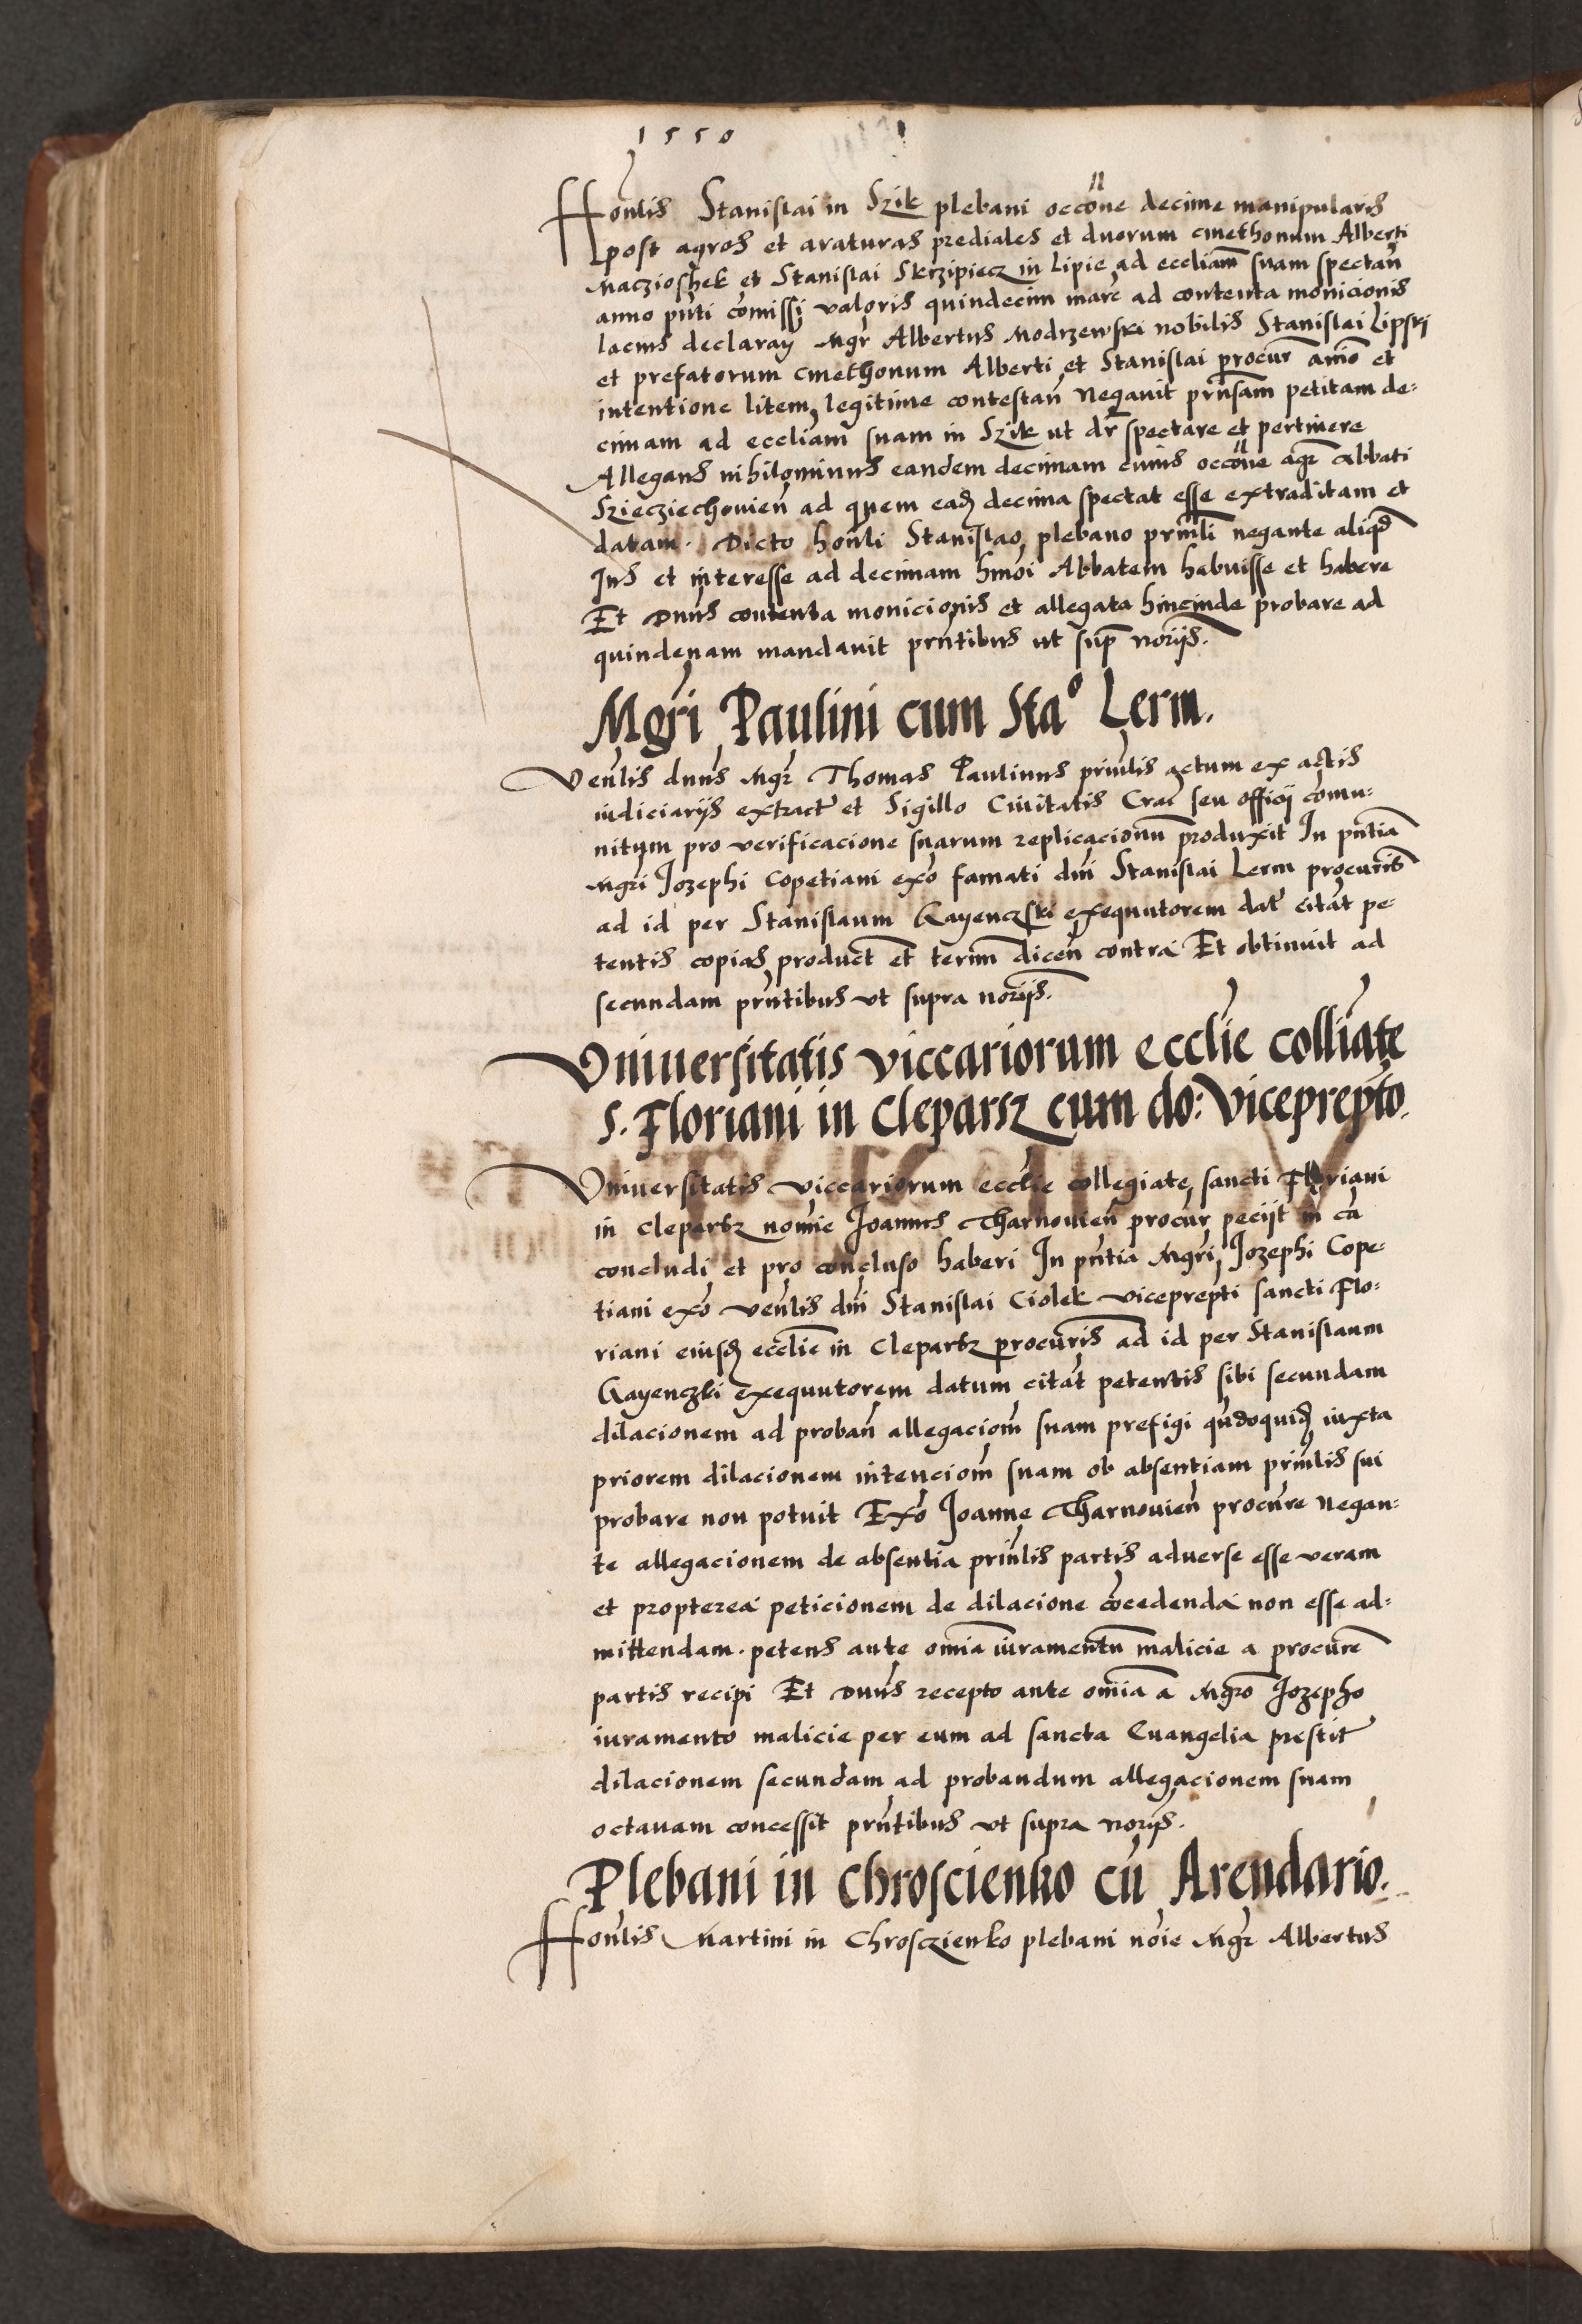 1550
Honlis Stanislai in Szik plebani occone decime manipularis
post agros et araturas prediales et duorum cmethonum Alberti
Maczioshek et Stanislai Skrzipiecz in Lipie ad eccliam suam spectan
anno pnti comissi valoris quindecim marc ad contenta monicionis
lacius declaran Mgr Albertus Modrzewski nobilis Stanislai Lipski
et prefatorum cmethonum Alberti et Stanislai procur animo et
intentione litem legitime contestan Negavit prnsam petitam de=
cimam ad eccliam suam in Szik ut dr spectare et pertinere
Allegans nihilominus eandem decimam eius occone agr Abbati
Sziecziechovien ad quem ead decima spectat esse extraditam et
datam. Dicto honli Stanislao plebano prinli negante aliqd
Ius et interesse ad decimam hmoi Abbatem habuisse et habere
Et Dnus contenta monicionis et allegata hincinde probare ad
quindenam mandavit prntibus ut sup norijs.
Mgri Paulini cum Stao Lerm.
Venlis dnus Mgr Thomas Paulinus prinlis actum ex actis
iudiciarijs extract et Sigillo Civitatis Crac seu officij comu=
nitum pro verificacione suarum replicacionum produxit In pntia
Mgri Jozephi Copetiani exo famati dni Stanislai Lerm procuris
ad id per Stanislaum Kayenczski exequutorem dat citat pe=
tentis copias product et termi dicen contra Et obtinuit ad
secundam prntibus ut supra norijs.
Universitatis viccariorum ecclie colliate
S. Floriani in Cleparsz cum do: Viceprepto.
Universitatis viccariorum ecclie collegiate sancti Floriani
in Clepartz nomie Joannes Tharnovien procur pecijt in ca
concludi et pro concluso haberi In pntia Mgri Jozephi Cope=
tiani exo venlis dni Stanislai Ciolek viceprepti sancti Flo=
riani eiusd ecclie in Clepartz procuris ad id per Stanislaum
Kayenczki exequutorem datum citat petentis sibi secundam
dilacionem ad proban allegaciom suam prefigi qndoquid iuxta
priorem dilacionem intenciom suam ob absentiam prinlis sui
probare non potuit Exo Joanne Tharnovien procure Negan=
te allegacionem de absentia prinlis partis adverse esse veram
et propterea peticionem de dilacione cocedenda non esse ad=
mittendam. petens ante omia iuramentum malicie a procure
partis recipi Et Dnus recepto ante omia a Mgro Jozepho
iuramento malicie per eum ad sancta Evangelia prestit
dilacionem secundam ad probandum allegacionem suam
octavam concessit prntibus ut supra norijs.
Plebani in Chroscienko cu Arendario.
Honlis Martini in Chrosczienko plebani noie Mgr Albertus